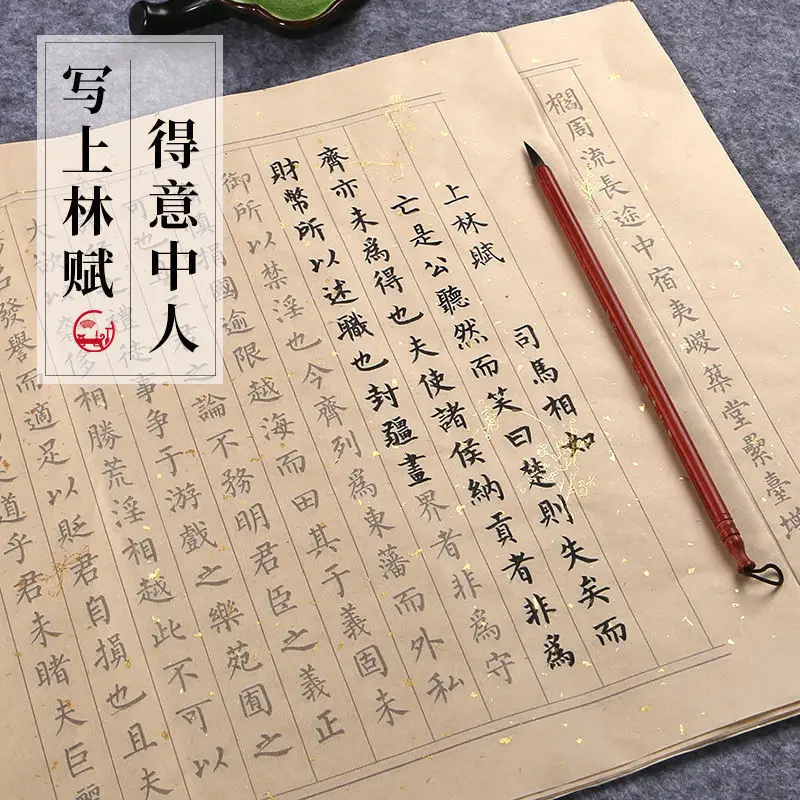 得意中人
写上林赋
周流長途中宿夷嵕築堂累臺
上林賦 司馬相如
亡是公聽然而笑曰楚則失矣而
齊亦未為得也夫使諸侯納貢者非為
財幣所以述職也封疆畫界者非為守
御所以禁淫也今齊列為東藩而外私
慎捐國逾限越海而田其于義固未
可也君之論不務明君臣之義正
禮徒事爭于游戲之樂苑囿之
大欲以奢侈相勝荒淫相越此不可以
名發譽而適足以貶君自損也且夫
道乎君未睹夫巨麗